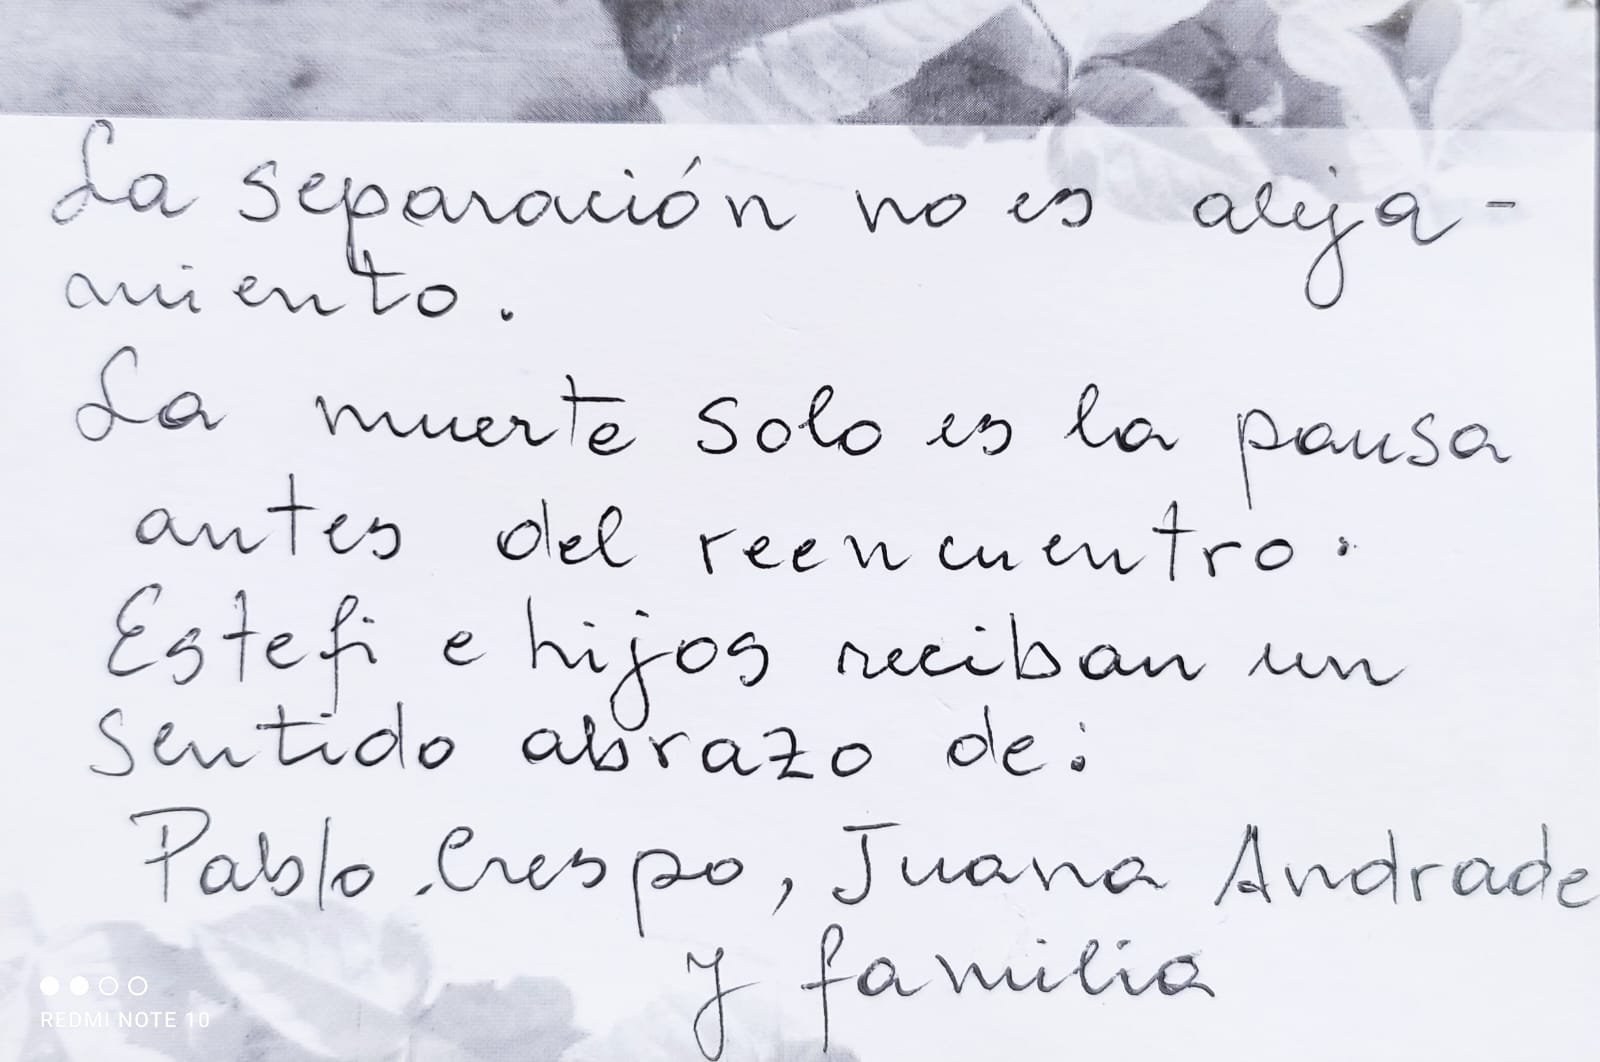 La separación no es aleja-
miento.
La muerte solo es la pausa
antes del reencuentro.
Estefi e hijos reciban un
sentido abrazo de:
Pablo Crespo, Juana Andrade
y familia
REDMI NOTE 10